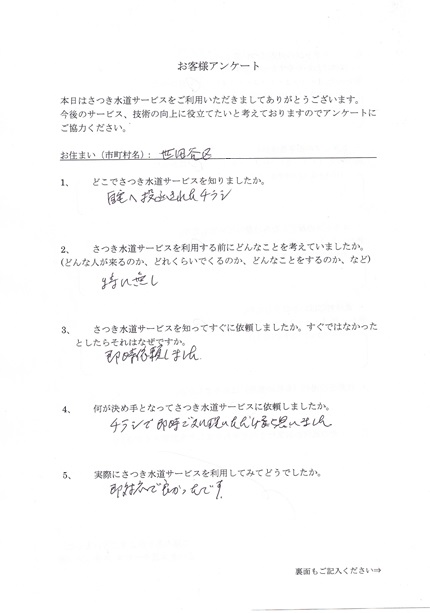 お客様アンケート
本日はさつき水道サービスをご利用いただきましてありがとうございます。
今後のサービス、技術の向上に役立てたいと考えておりますのでアンケートに
ご協力ください。
お住まい（市町村名）： 世田谷区
1、 どこでさつき水道サービスを知りましたか。
自宅へ投函されたチラシ
2、 さつき水道サービスを利用する前にどんなことを考えていましたか。
(どんな人が来るのか、どれくらいでくるのか、どんなことをするのか、など)
特に無し
3、 さつき水道サービスを知ってすぐに依頼しましたか。すぐではなかった
としたらそれはなぜですか。
即時依頼しました
4、 何が決め手となってさつき水道サービスに依頼しましたか。
チラシで即時 思いました
5、 実際にさつき水道サービスを利用してみてどうでしたか。
良かったです
裏面もご記入ください⇒